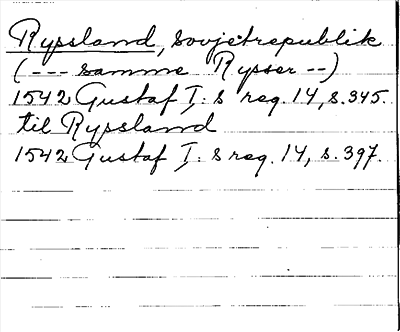 Ryssland, Sovjetrepublik
(--- samme Rysser --)
1542 Gustaf I: s reg. 14, s. 345.
til Ryssland
1542 Gustaf I: s reg. 14, s. 397.